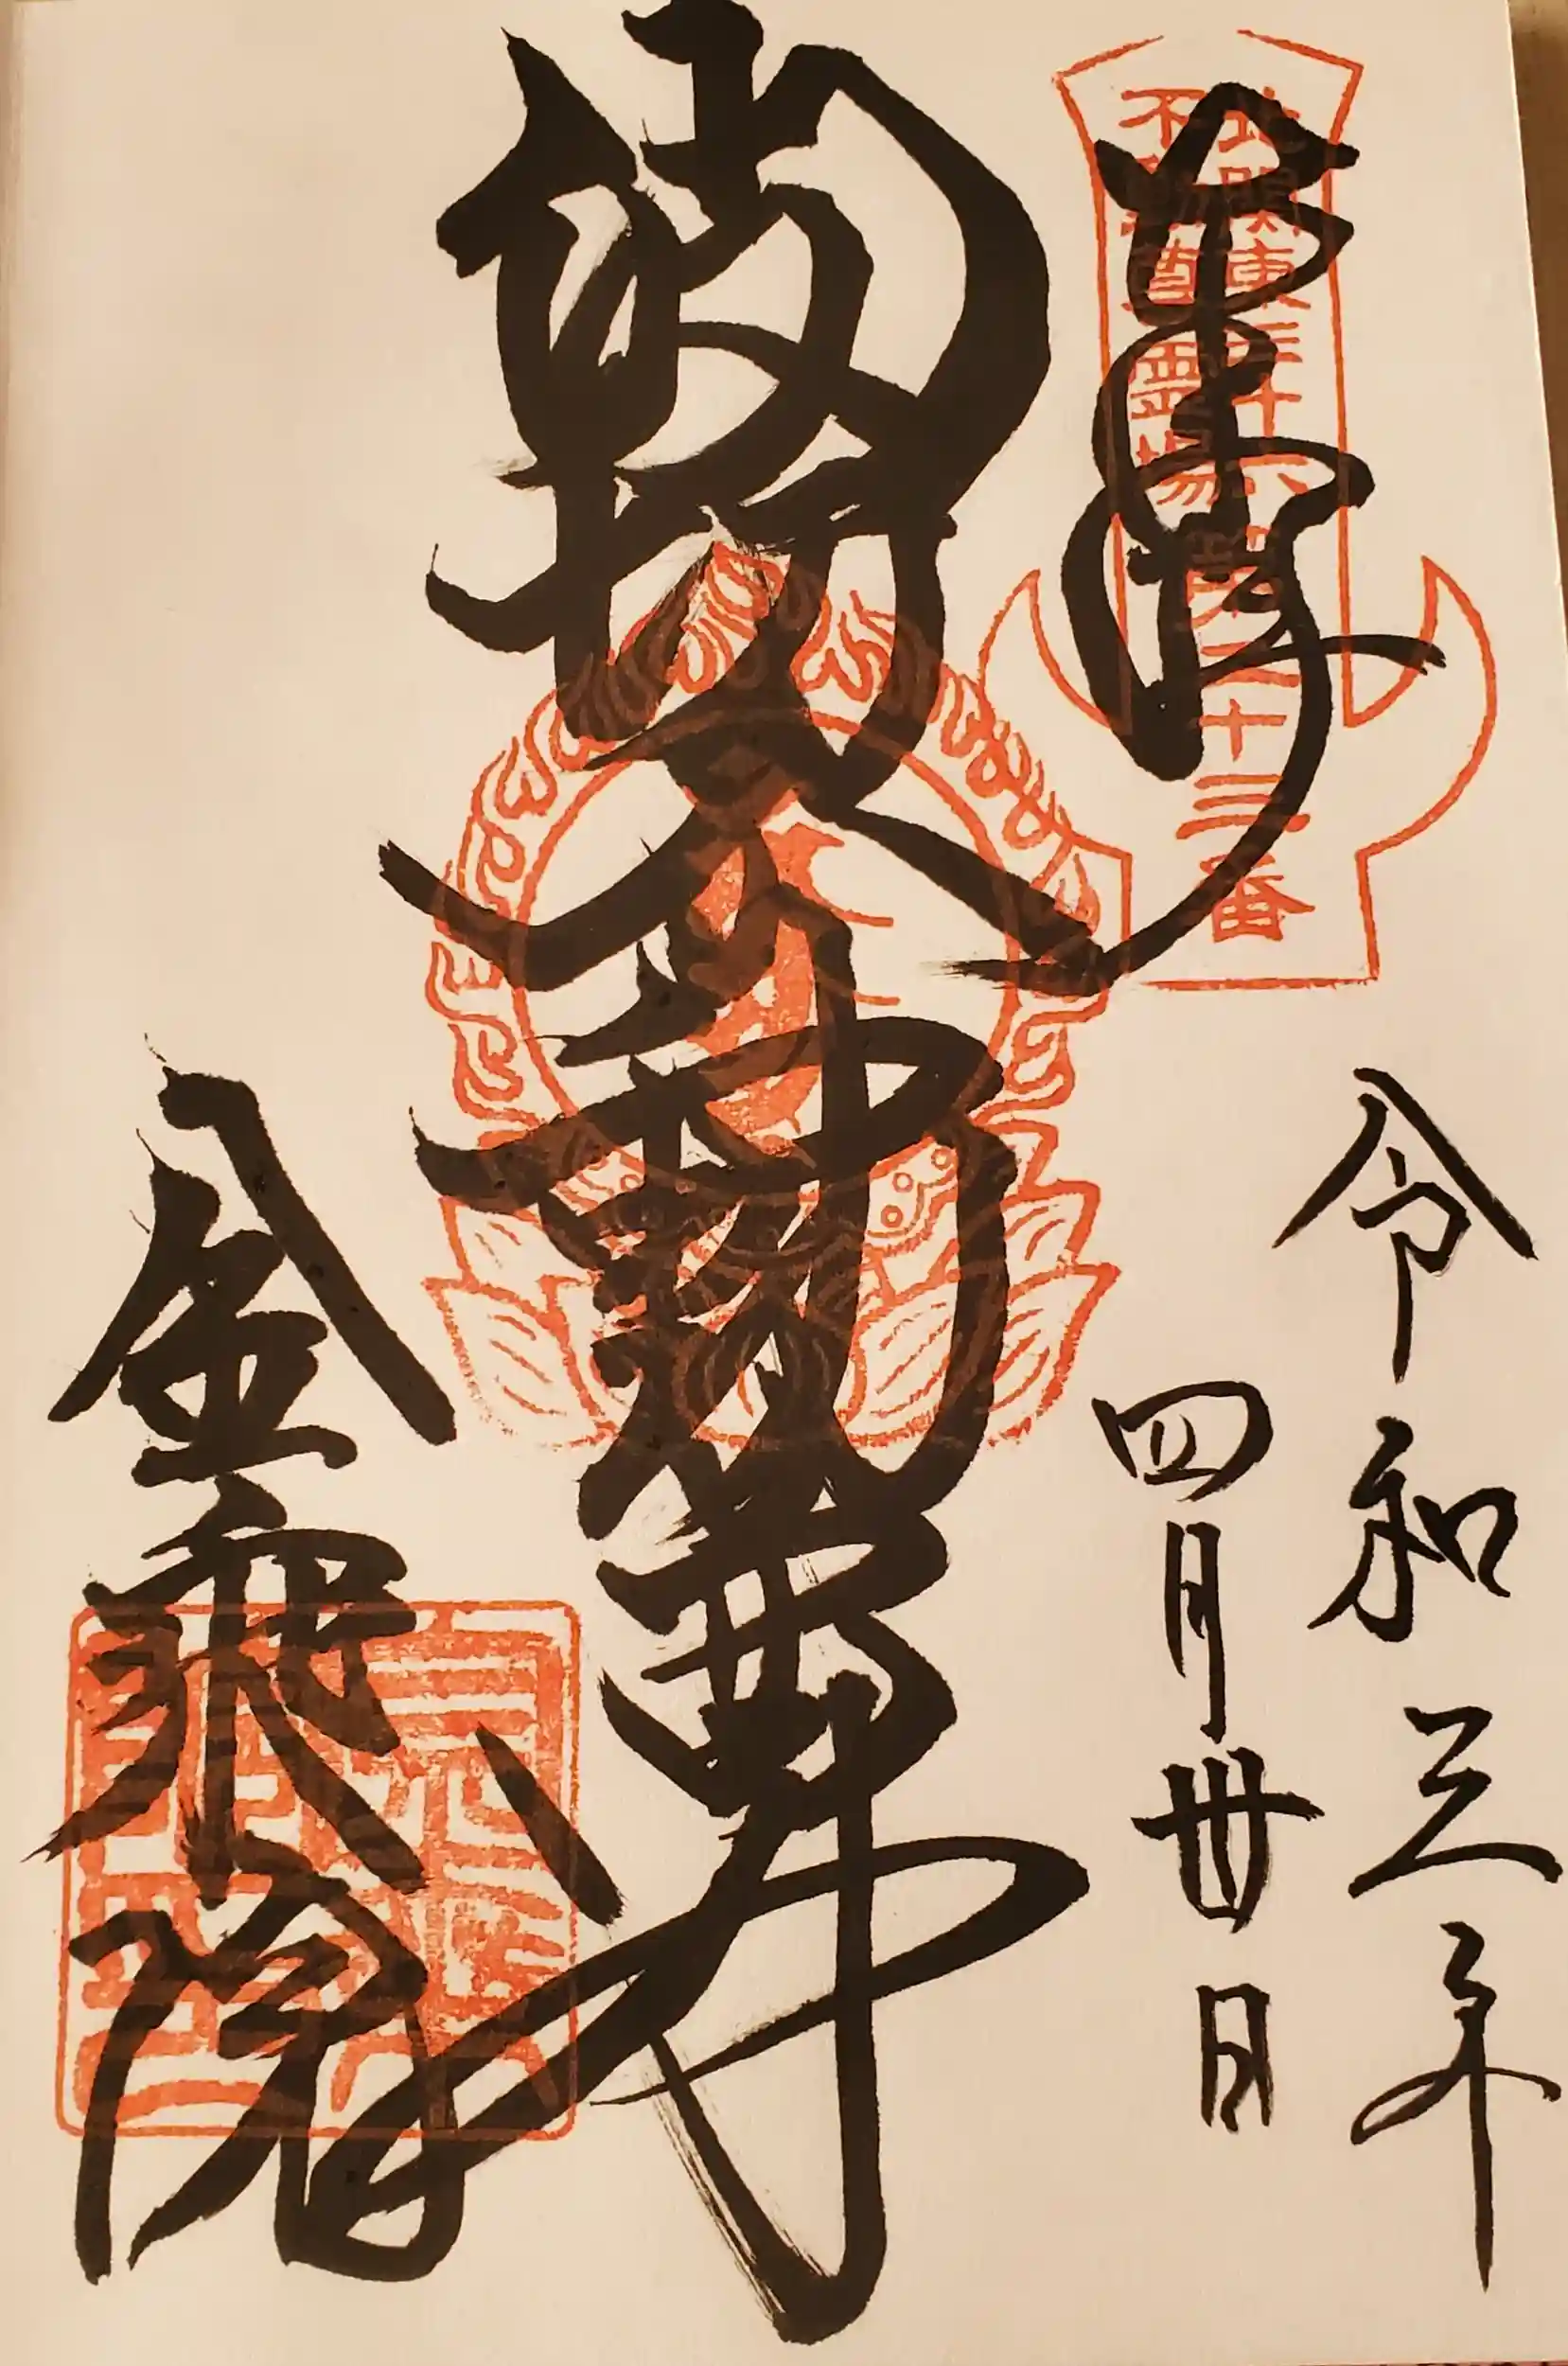 奉拝
北関東三十六
不動尊霊場
第二十三番
令和三年
四月丗日
波切不動尊
金乗院